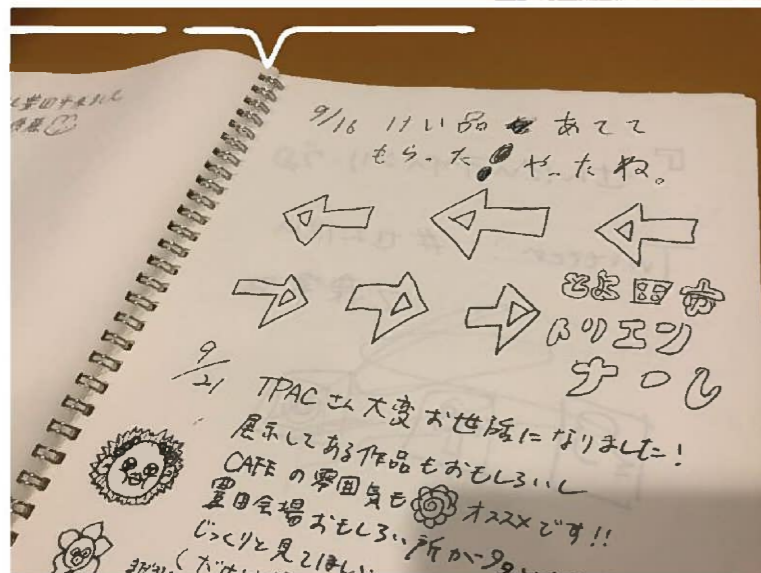 9/16 けい品をあてて
もらった! やったね。
とよ田市
トリエン
ナーレ
9/21 TPACさん大変お世話になりました!
展示してある作品もおもしろいし
CAFEの雰囲気も オススメです!!
豊田会場おもしろい所が
じっくりと見てほしい